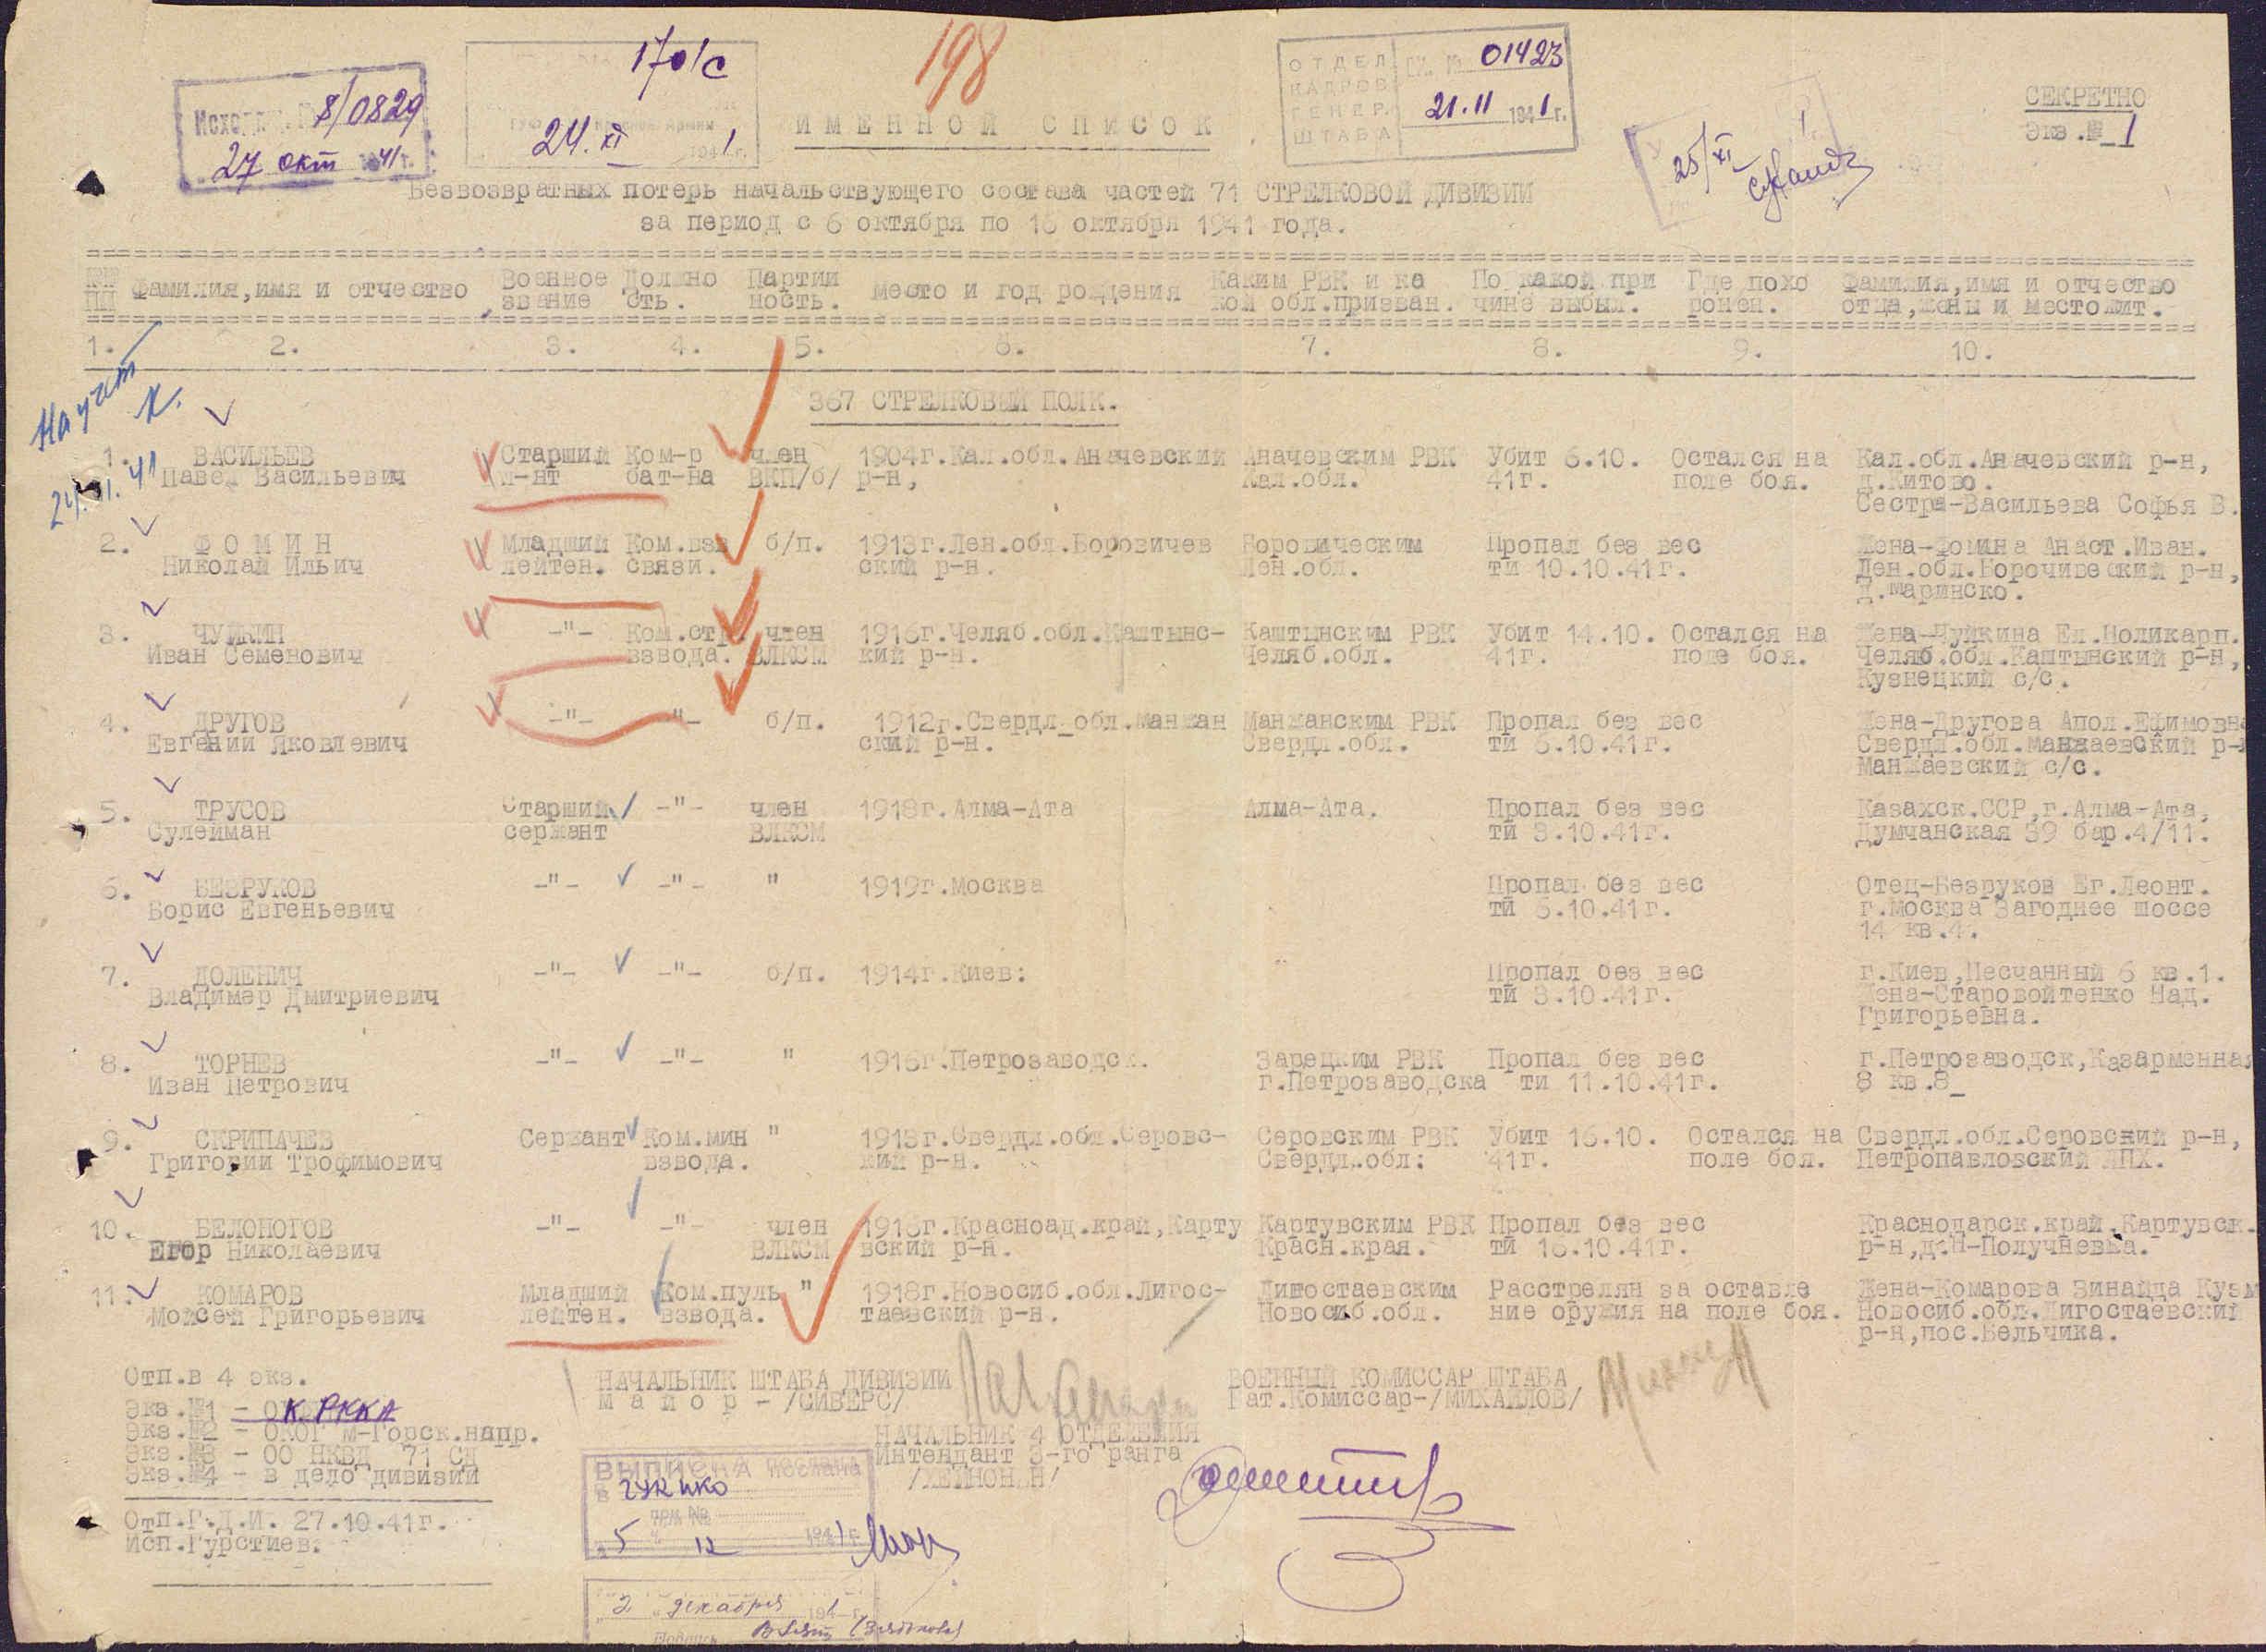 170/с
198
ОТДЕЛ КАДРОВ ГЕНЕР. ШТАБА
01423
21.11 1941г.
8/0829
27 окт 41г.
24.XI 1941г.
25/XI
СЕКРЕТНО
Экз.№ 1
ИМЕННОЙ СПИСОК
Безвозвратных потерь начальствующего состава частей 71 СТРЕЛКОВОЙ ДИВИЗИИ
за период с 6 октября по 16 октября 1941 года.
Фамилия,имя и отчество Военное Должно Партии Место и год рождения Каким РВК и ка По какой при Где похо Фамилия,имя и отчество
ПП звание сть. ность. кой обл.призван. чине выбыл. ронен. отца,жены и местожит.
1. 2. 3. 4. 5. 6. 7. 8. 9. 10.
На учет
24.XI.41
367 СТРЕЛКОВЫЙ ПОЛК.
1. ВАСИЛЬЕВ Старший Ком-р член 1904г.Кал.обл.Аначевский Аначевским РВК Убит 6.10. Остался на Кал.обл.Аначевский р-н,
Павел Васильевич л-нт бат-на ВКП/б/ р-н, Кал.обл. 41г. поле боя. д.Китово.
Сестра-Васильева Софья В.
2. ФОМИН Младший Ком.взв б/п. 1913г.Лен.обл.Боровичев Боровическим Пропал без вес Жена-Фомина Анаст.Иван.
Николай Ильич лейтен. связи. ский р-н. Лен.обл. ти 10.10.41г. Лен.обл.Борочивеский р-н,
д.Маринско.
3. ЧУЙКИН -"- Ком.стр. член 1916г.Челяб.обл.Каштынс- Каштынским РВК Убит 14.10. Остался на Жена-Чуйкина Ел.Поликарп.
Иван Семенович взвода. ВЛКСМ кий р-н. Челяб.обл. 41г. поле боя. Челяб.обл.Каштынский р-н,
Кузнецкий с/с.
4. ДРУГОВ -"- -"- б/п. 1912г.Свердл.обл.Манжан Манжанским РВК Пропал без вес Жена-Другова Апол.Ефимовна
Евгений Яковлевич ский р-н. Свердл.обл. ти 6.10.41г. Свердл.обл.Манжаевский р-н
Манжаевский с/с.
5. ТРУСОВ Старший -"- член 1918г.Алма-Ата Алма-Ата. Пропал без вес Казахск.ССР,г.Алма-Ата,
Сулейман сержант ВЛКСМ ти 3.10.41г. Думчанская 39 бар.4/11.
6. БЕЗРУКОВ -"- -"- " 1919г.Москва Пропал без вес Отец-Безруков Ег.Леонт.
Борис Евгеньевич ти 6.10.41г. г.Москва Загоднее шоссе
14 кв.4.
7. ДОЛЕНИЧ -"- -"- б/п. 1914г.Киев: Пропал без вес г.Киев,Песчанный 6 кв.1.
Владимер Дмитриевич ти 3.10.41г. Жена-Старовойтенко Над.
Григорьевна.
8. ТОРНЕВ -"- -"- " 1916г.Петрозаводск. Зарецким РВК Пропал без вес г.Петрозаводск,Казарменная
Иван Петрович г.Петрозаводска ти 11.10.41г. 8 кв.8_
9. СКРИПАЧЕВ Сержант Ком.мин " 1915г.Свердл.обл.Серовс- Серовским РВК Убит 16.10. Остался на Свердл.обл.Серовский р-н,
Григорий Трофимович взвода. кий р-н. Свердл.обл: 41г. поле боя. Петропавловский ЛПХ.
10. БЕЛОНОГОВ -"- -"- член 1916г.Красноад.край,Карту Картувским РВК Пропал без вес Краснодарск.край,Картувск.
Егор Николаевич ВЛКСМ вский р-н. Красн.края. ти 16.10.41г. р-н,д.Н-Получневка.
11. КОМАРОВ Младший Ком.пуль " 1918г.Новосиб.обл.Лигос- Лигостаевским Расстрелян за оставле Жена-Комарова Зинаида Кузм
Мойсей Григорьевич лейтен. взвода. таевский р-н. Новосиб.обл. ние оружия на поле боя. Новосиб.обл.Лигостаевский
р-н,пос.Бельчика.
Отп.в 4 экз.
Экз.№1 - К РККА
Экз.№2 - ОКОГ М-Горск.напр.
Экз.№3 - ОО НКВД 71 СД
Экз.№4 - в дело дивизии
Отп.Г.Д.И. 27.10.41г.
Исп.Гурстиев.
НАЧАЛЬНИК ШТАБА ДИВИЗИИ
Майор - /СИВЕРС/
ВОЕННЫЙ КОМИССАР ШТАБА
Бат.Комиссар-/МИХАЙЛОВ/
НАЧАЛЬНИК 4 ОТДЕЛЕНИЯ
Интендант 3-го ранга
ВЫПИСКА послана
в ГУК НКО
при №
5 12 1941г.
2 декабря 1941г.
Подпись